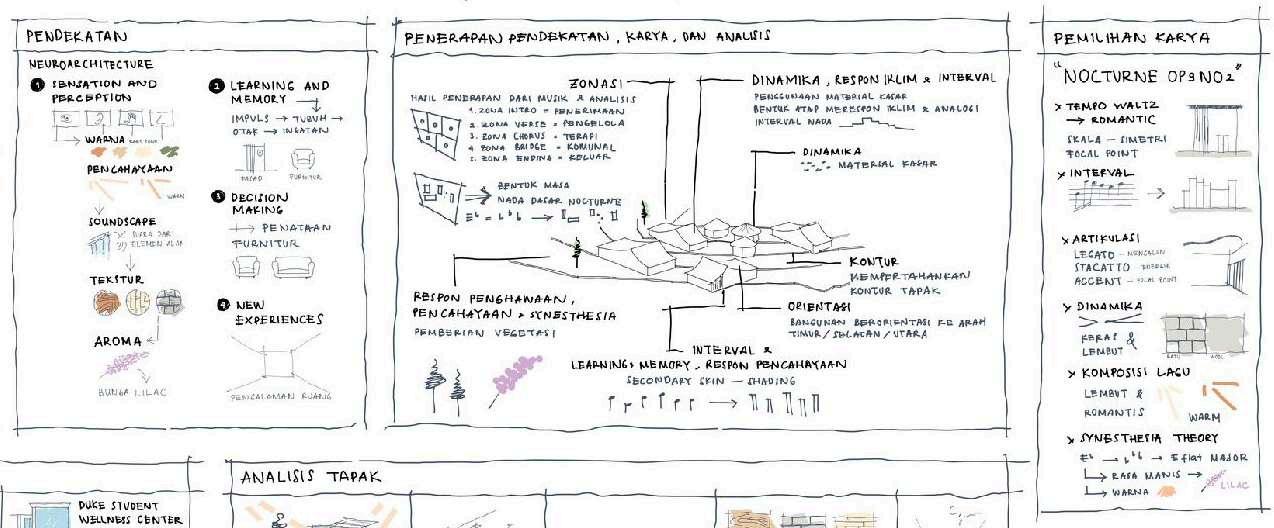 PENDEKATAN
NEUROARCHITECTURE
1 SENSATION AND
PERCEPTION
WARNA
PENCAHAYAAN
WARM
SOUNDSCAPE
ELEMEN ALAM
TEKSTUR
AROMA
BUNGA LILAC
2 LEARNING AND
MEMORY
IMPULS → TUBUH →
OTAK → INGATAN
FASAD
FURNITUR
3 DECISION
MAKING
→ PENATAAN
FURNITUR
4 NEW
EXPERIENCES
PENGALAMAN RUANG
PENERAPAN PENDEKATAN, KARYA, DAN ANALISIS
HASIL PENERAPAN DARI MUSIK & ANALISIS
1. ZONA INTRO = PENERIMAAN
2. ZONA VERSE = PENGELOLA
3. ZONA CHORUS = TERAPI
4. ZONA BRIDGE = KOMUNAL
5. ZONA ENDING = KELUAR
ZONASI
DINAMIKA, RESPON IKLIM & INTERVAL
PENGGUNAAN MATERIAL KASAR
BENTUK ATAP MERESPON IKLIM & ANALOGI
INTERVAL NADA
DINAMIKA
MATERIAL KASAR
BENTUK MASA
NADA DASAR NOCTURNE
KONTUR
MEMPERTAHANKAN
KONTUR TAPAK
ORIENTASI
BANGUNAN BERORIENTASI KE ARAH
TIMUR/SELATAN/UTARA
RESPON PENGHAWAAN,
PENCAHAYAAN & SYNESTHESIA
PEMBERIAN VEGETASI
INTERVAL &
LEARNING & MEMORY, RESPON PENCAHAYAAN
SECONDARY SKIN — SHADING
PEMILIHAN KARYA
"NOCTURNE OP9 NO2"
> TEMPO WALTZ
→ ROMANTIC
SKALA — SIMETRI
FOCAL POINT
> INTERVAL
> ARTIKULASI
LEGATO —
STACATTO —
ACCENT — FOCAL POINT
> DINAMIKA
KERAS &
LEMBUT
BATU
> KOMPOSISI LAGU
LEMBUT &
ROMANTIS
WARM
> SYNESTHESIA THEORY
→ E flat MAJOR
RASA MANIS →
LILAC
WARNA
ANALISIS TAPAK
DUKE STUDENT
WELLNESS CENTER